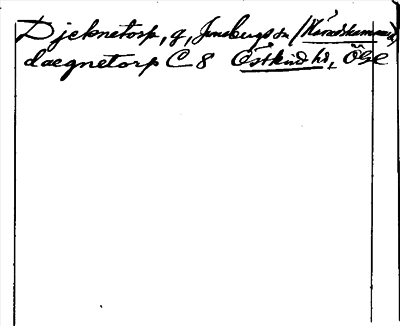 Djeknetorp, g, Jonsbergs sn (Häradskammare)
daegnetorp C 8 Östkind hd, ÖGL